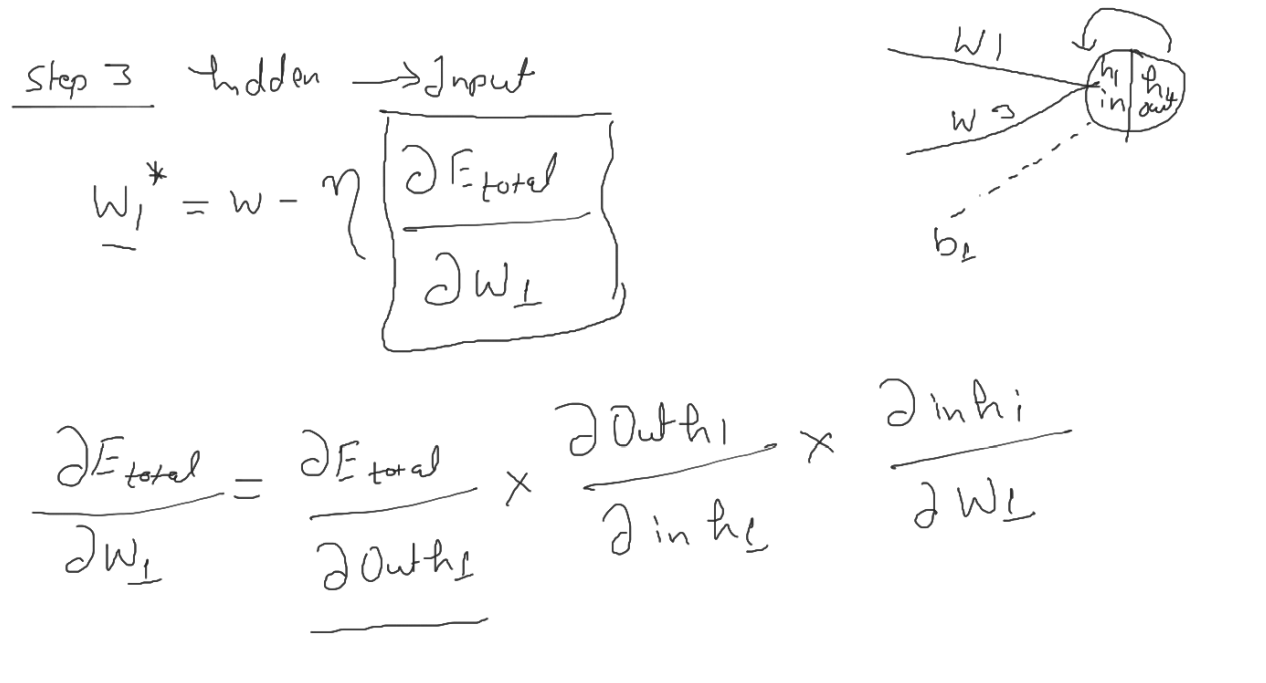 Step 3 hidden → Input
W1* = w - η ∂Etotal / ∂W1
W1
W3
h1 in | h1 out
b1
∂Etotal / ∂W1 = ∂Etotal / ∂Outh1 × ∂Outh1 / ∂inh1 × ∂inhi / ∂W1